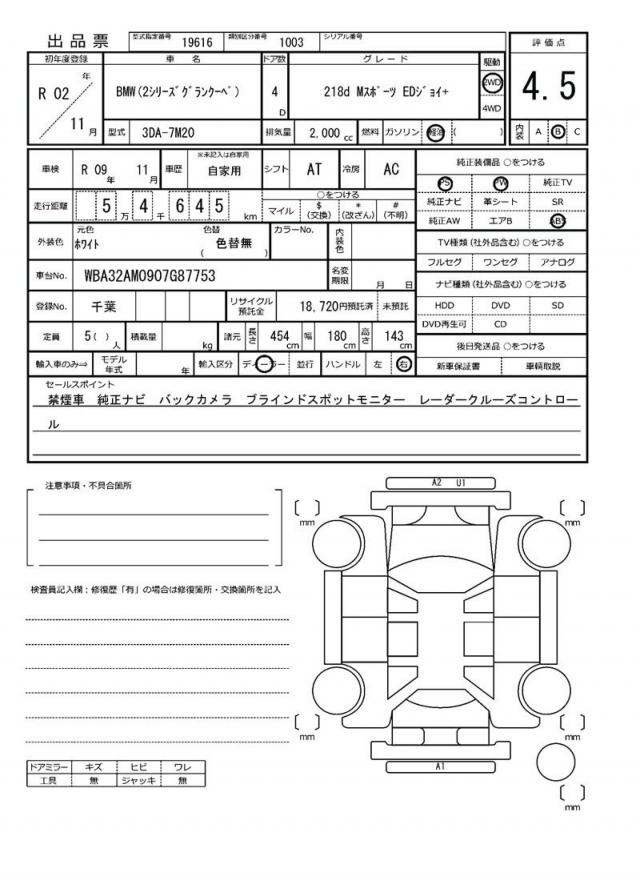 出品票 型式指定番号 19616 類別区分番号 1003 シリアル番号
初年度登録 車名 ドア数 グレード 駆動 評価点
R 02 年 11 月 BMW(2シリーズグランクーペ) 4 D 218d Mスポーツ EDジョイ+ 2WD 4WD 4.5
型式 3DA-7M20 排気量 2,000 cc 燃料 ガソリン 軽油 ( ) 内装 A B C
車検 R 09 年 11 月 車歴 ※未記入は自家用 自家用 シフト AT 冷房 AC 純正装備品 ○をつける
PS PW 純正TV
走行距離 5 万 4 千 6 4 5 km ○をつける マイル $ (交換) * (改ざん) # (不明) 純正ナビ 革シート SR
純正AW エアB ABS
外装色 元色 ホワイト 色替 ( 色替無 ) カラーNo. 内装色 TV種類 (社外品含む) ○をつける
フルセグ ワンセグ アナログ
車台No. WBA32AM0907G87753 名変期限 月 日 ナビ種類 (社外品含む) ○をつける
登録No. 千葉 リサイクル預託金 18,720円預託済 未預託 HDD DVD SD
DVD再生可 CD
定員 5( ) 人 積載量 kg 諸元 長さ 454 cm 幅 180 cm 高さ 143 cm 後日発送品 ○をつける
輸入車のみ⇒ モデル年式 年 輸入区分 ディーラー 並行 ハンドル 左 右 新車保証書 車輌取説
セールスポイント
禁煙車 純正ナビ バックカメラ ブラインドスポットモニター レーダークルーズコントロー
ル
注意事項・不具合箇所
A2 U1
mm mm
検査員記入欄：修復歴「有」の場合は修復箇所・交換箇所を記入
mm mm
A1
mm
ドアミラー キズ ヒビ ワレ
工具 無 ジャッキ 無